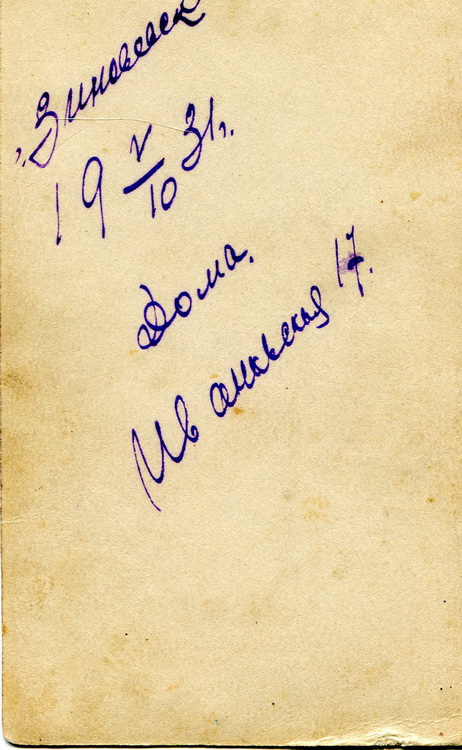 „Зиновьевск
19 V/10 31 г.
Дома.
Иванковская 17.